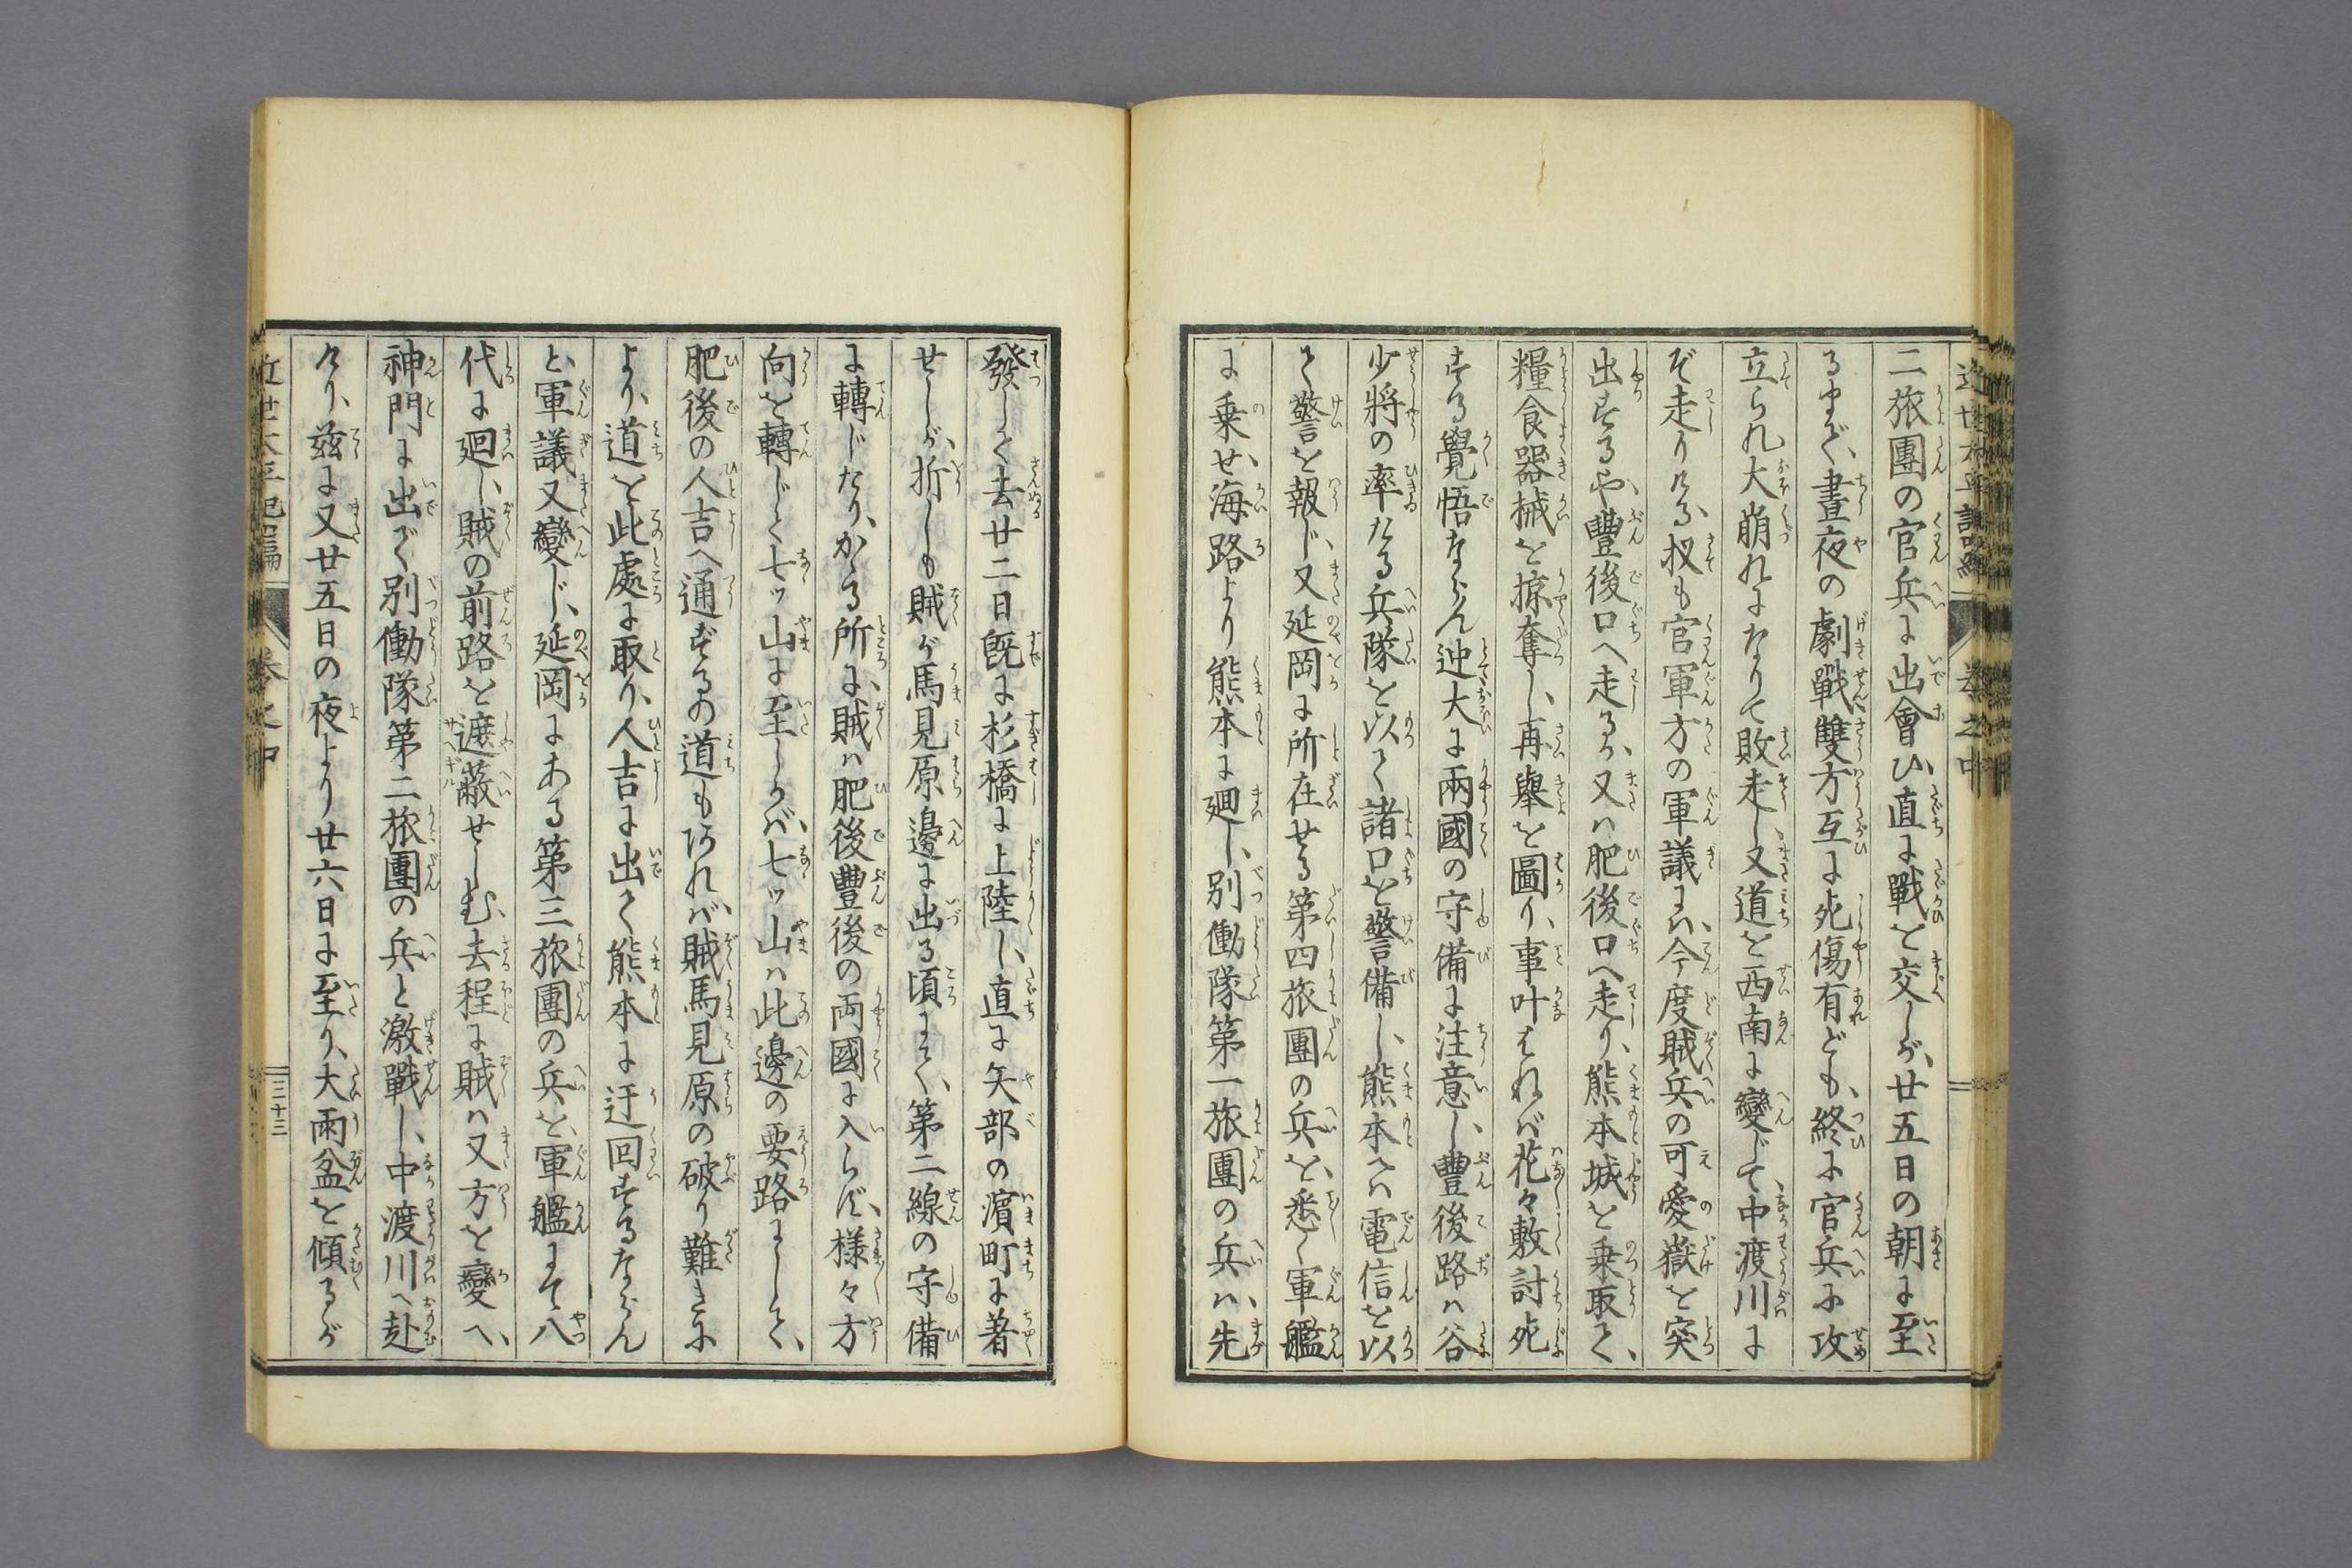 二旅團の官兵に出會ひ、直に戰を交しが、廿五日の朝に至
るまで、晝夜の劇戰、雙方互に死傷有ども、終に官兵に攻
立られ大崩れになりて敗走し、又道を西南に變じて、中渡川に
ぞ走りける、扨も官軍方の軍議には、今度賊兵の可愛嶽を突
出するや、豐後口へ走るか、又は肥後口へ走り、熊本城を乗取て、
糧食器械を掠奪し、再擧を圖り、事叶はれば花々敷討死
する覺悟ならん迚大に兩國の守備に注意し、豐後路は谷
少將の率たる兵隊を以て諸口を警備し、熊本へは電信を以
て警を報じ、又延岡に所在せる第四旅團の兵を、悉く軍艦
に乗せ、海路より熊本に廻し、別働隊第一旅團の兵は、先
發して去廿二日既に杉橋に上陸し、直に矢部の濵町に着
せしが、折しも賊が馬見原邊に出る頃にて、第二線の守備
に轉じたり、かゝる所に、賊は肥後豐後の両國に入らず、様々方
向を轉じて七ッ山に至しかば、七ッ山は此邊の要路にして、
肥後の人吉へ通ずるの道も有れば、賊馬見原の破り難きに
より、道を此處に取り、人吉に出て熊本に迂回するならん
と、軍議又變じ、延岡にある第三旅團の兵を、軍艦にて八
代に廻し、賊の前路を遮蔽せしむ、去程に賊は又方を變へ、
神門に出で別働隊第二旅團の兵と激戰し、中渡川へ赴
けり、茲に又廿五日の夜より廿六日に至り、大雨盆を傾るが
近世太平記二編
卷之中
三十三